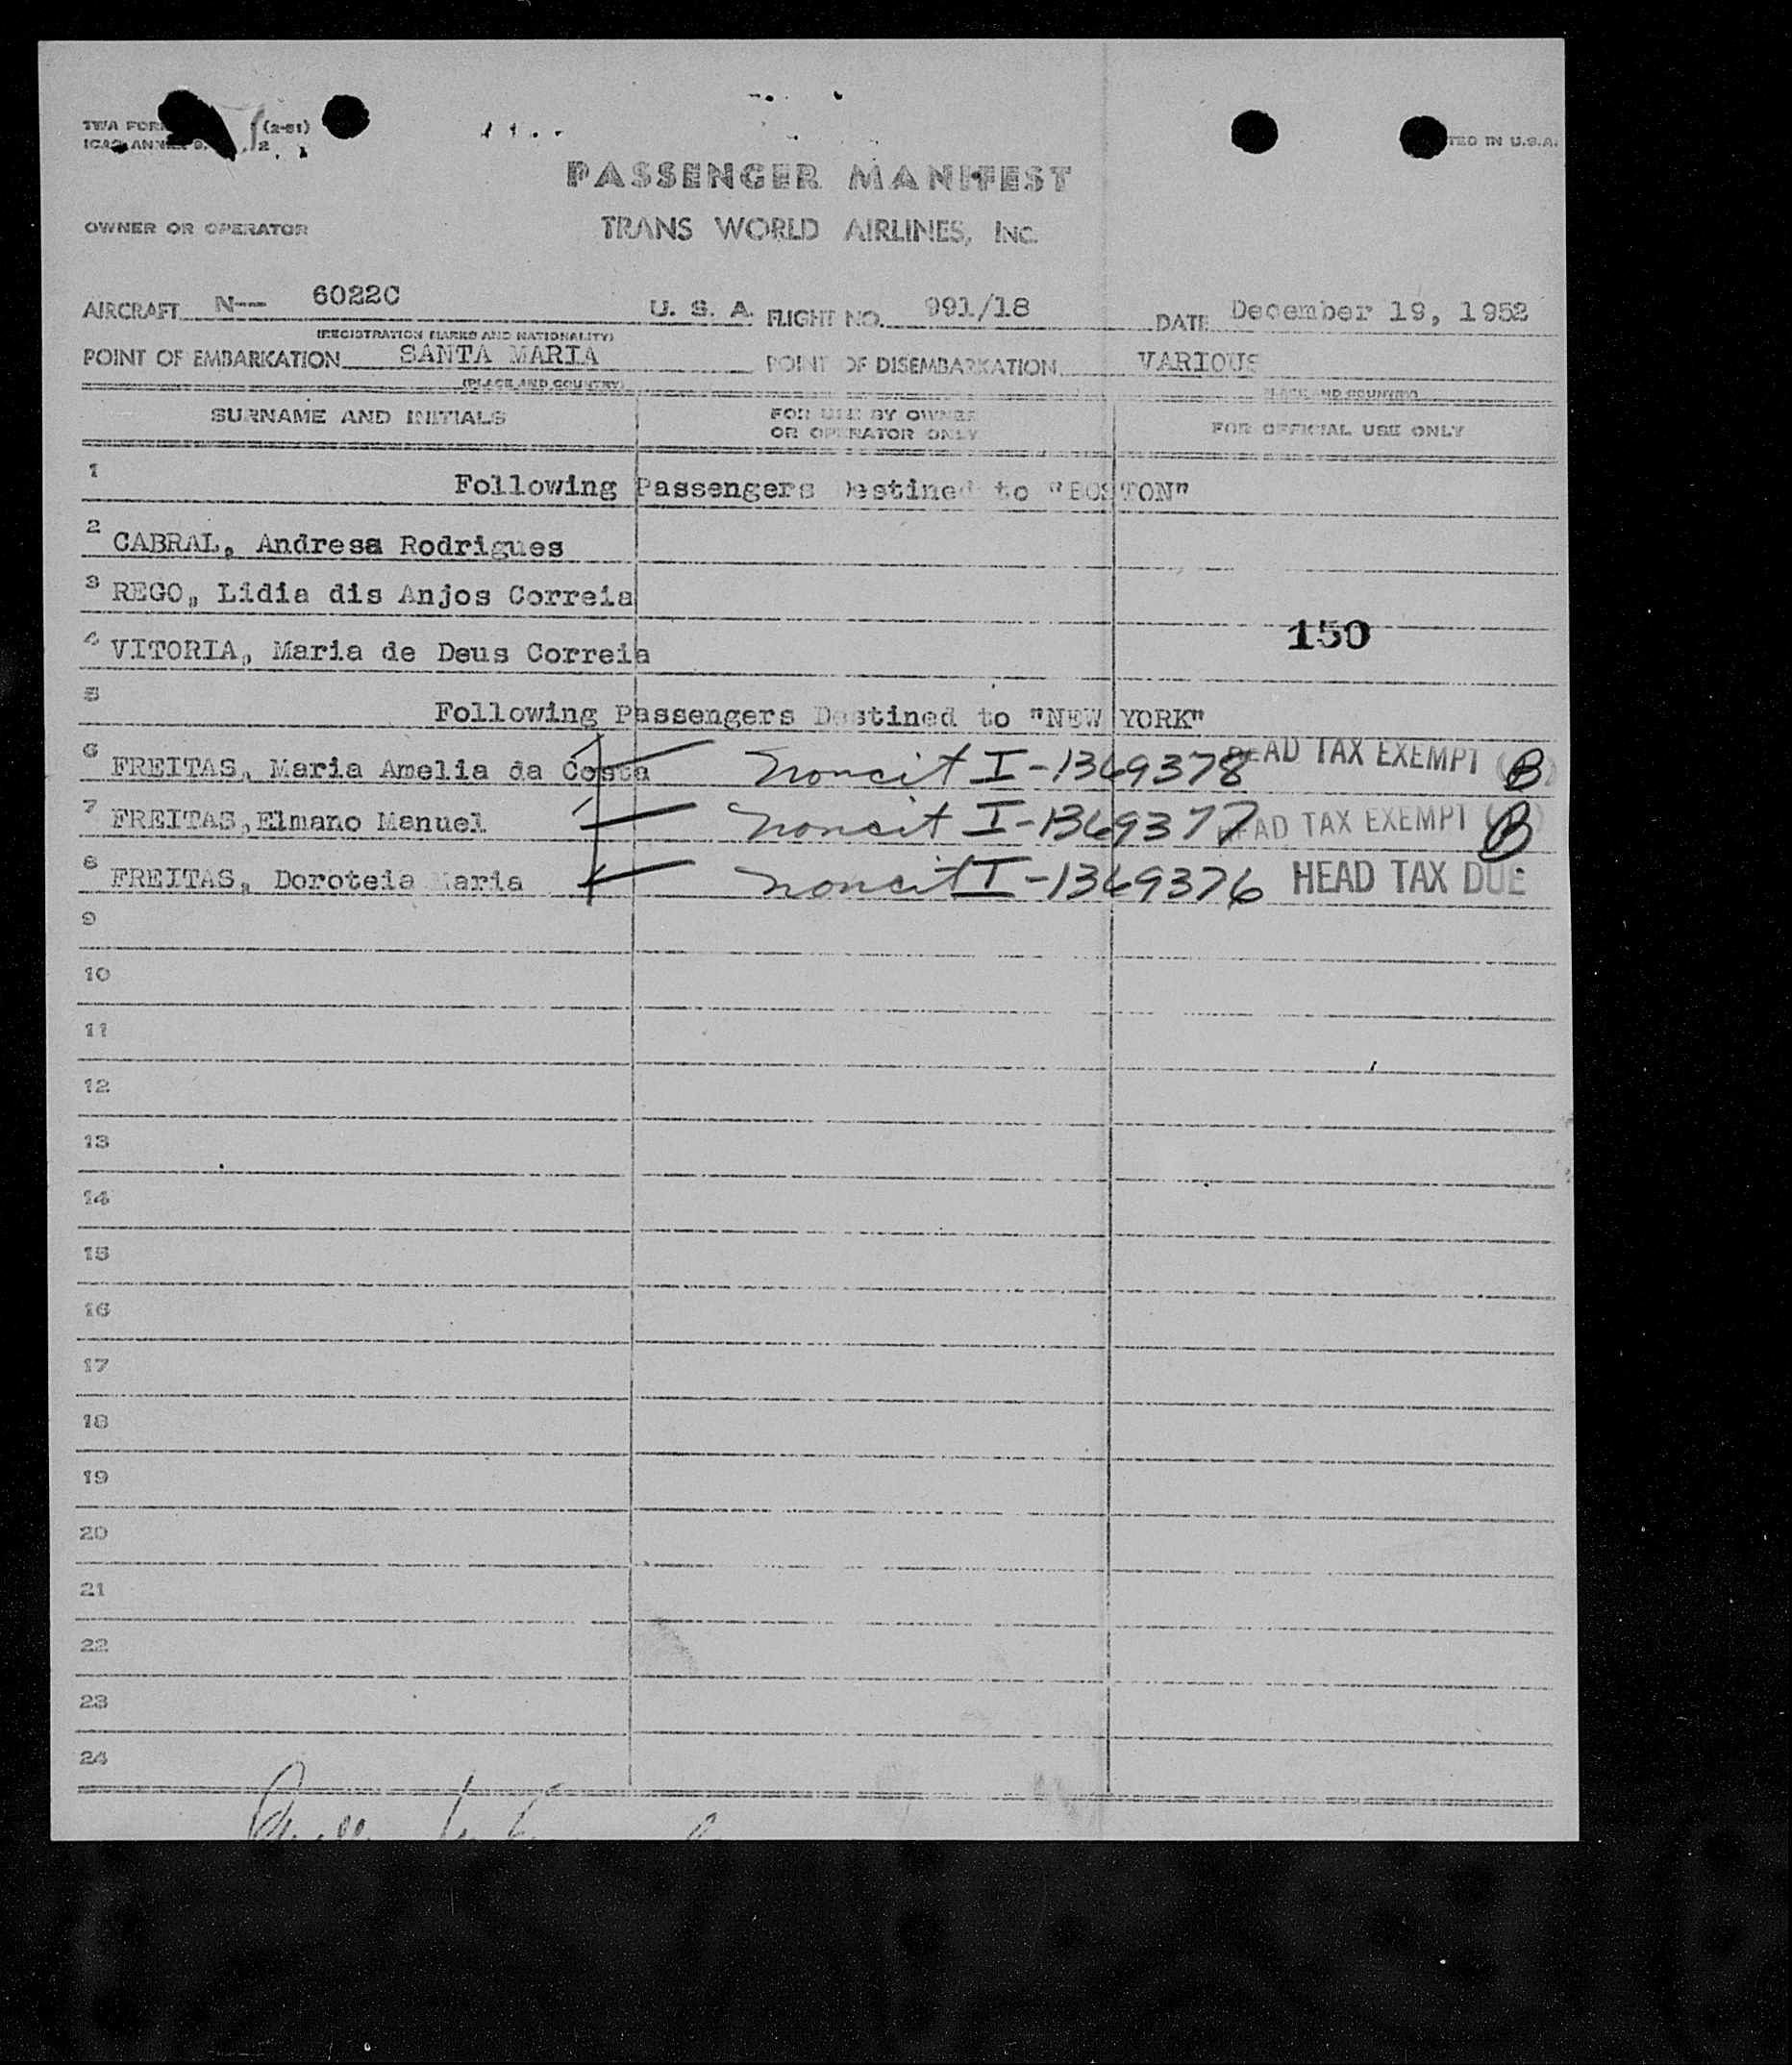 TWA FORM (2-51)
ICAO ANNEX 9. 2
TED IN U.S.A.
PASSENGER MANIFEST
OWNER OR OPERATOR TRANS WORLD AIRLINES, INC.
AIRCRAFT N-- 6022C U. S. A. FLIGHT NO. 991/18 DATE December 19, 1952
(REGISTRATION MARKS AND NATIONALITY)
POINT OF EMBARKATION SANTA MARIA POINT OF DISEMBARKATION VARIOUS
(PLACE AND COUNTRY) (PLACE AND COUNTRY)
SURNAME AND INITIALS FOR USE BY OWNER OR OPERATOR ONLY FOR OFFICIAL USE ONLY
1 Following Passengers Destined to "BOSTON"
2 CABRAL, Andresa Rodrigues
3 REGO, Lidia dis Anjos Correia
150
4 VITORIA, Maria de Deus Correia
5 Following Passengers Destined to "NEW YORK"
6 FREITAS, Maria Amelia da Costa noncit I-1369378 HEAD TAX EXEMPT (B)
7 FREITAS, Elmano Manuel noncit I-1369377 HEAD TAX EXEMPT (B)
8 FREITAS, Doroteia Maria noncit I-1369376 HEAD TAX DUE
9
10
11
12
13
14
15
16
17
18
19
20
21
22
23
24